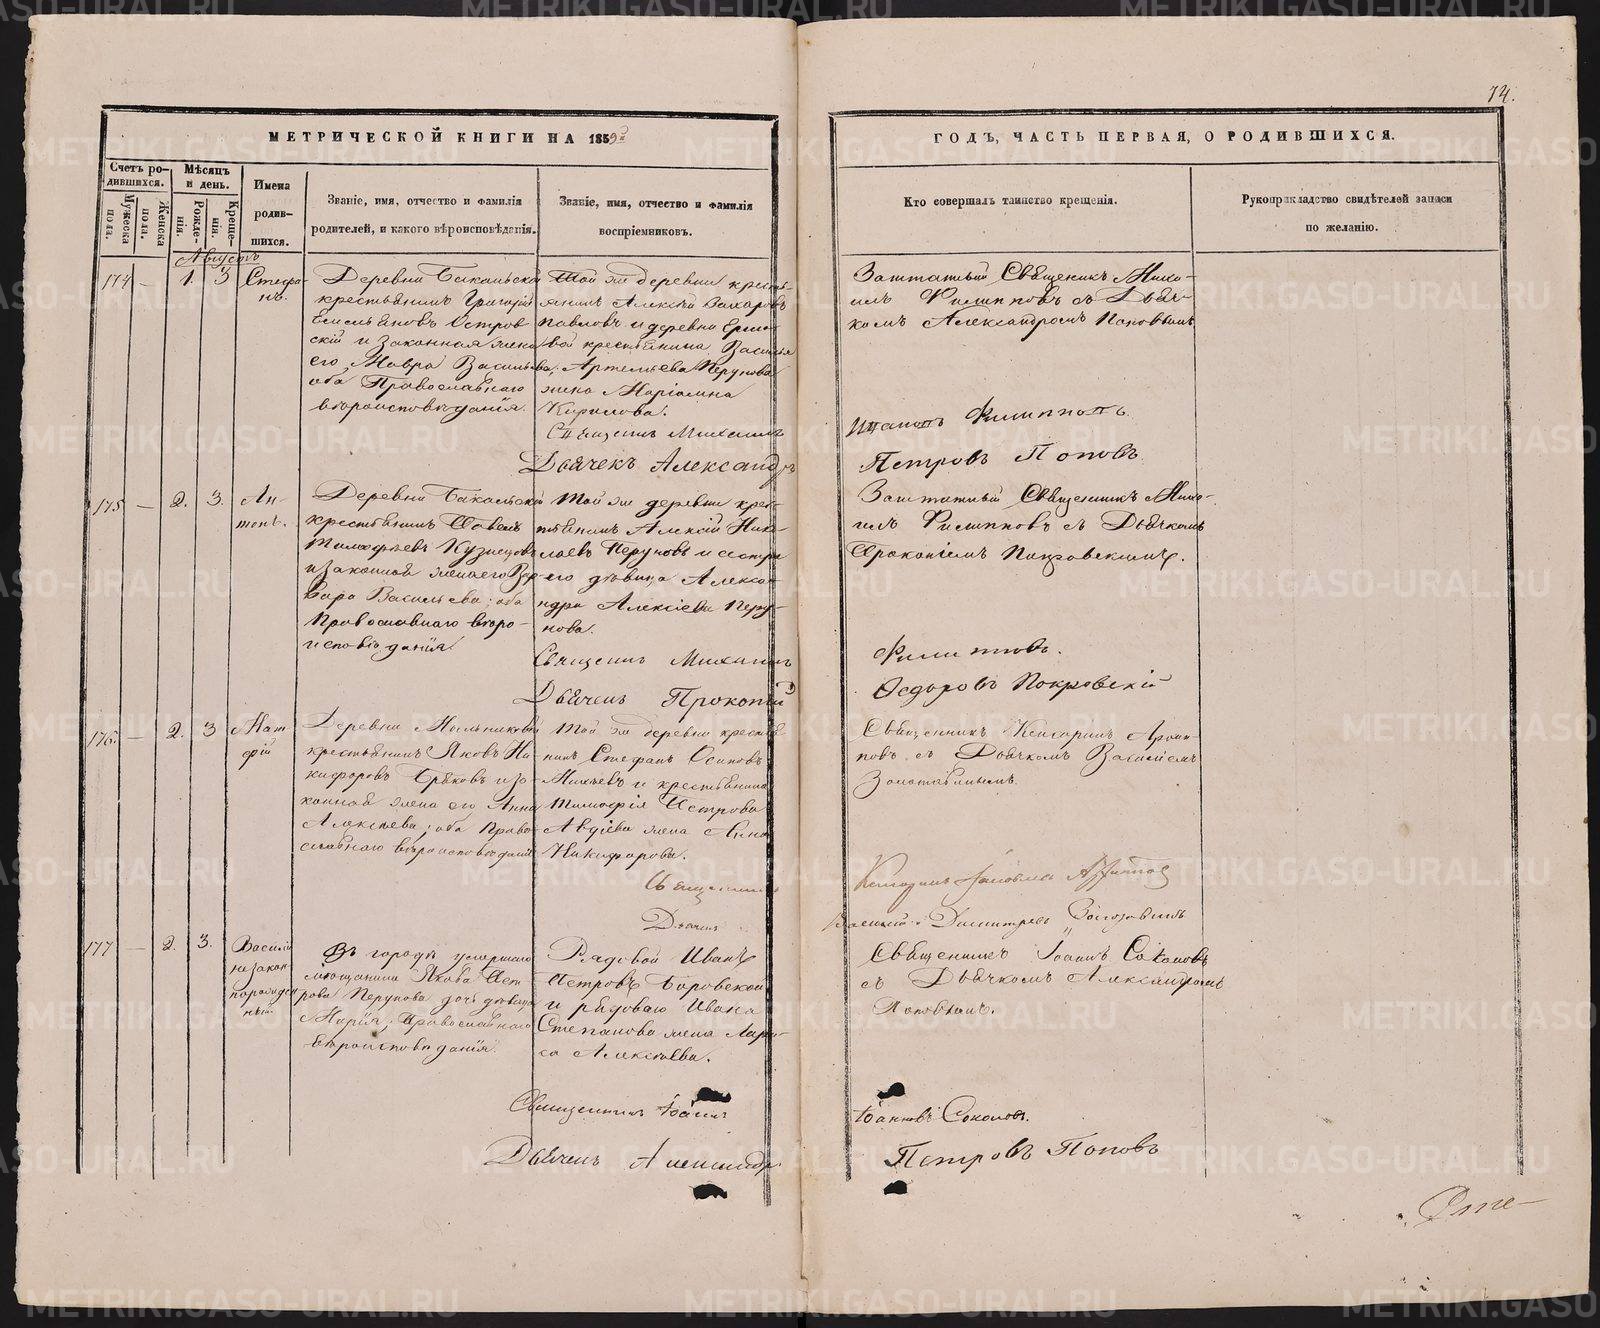 74.
МЕТРИЧЕСКОЙ КНИГИ НА 1859й
ГОДЪ, ЧАСТЬ ПЕРВАЯ, О РОДИВШИХСЯ.
Счетъ ро-
дившихся.
Мужеска
пола.
Женска
пола.
Мѣсяцъ
и день.
Рожде-
нія.
Креще-
нія.
Имена
родив-
шихся.
Званіе, имя, отчество и фамилія
родителей, и какого вѣроисповѣданія.
Званіе, имя, отчество и фамилія
воспріемниковъ.
Кто совершалъ таинство крещенія.
Рукоприкладство свидѣтелей записи
по желанію.
Августъ
174 — 1. 3
Стефа-
нъ.
Деревни Бакальской
крестьянинъ Григорій
Емельяновъ Остров-
скій и законная жена
его, Мавра Васильева,
оба Православнаго
вѣроисповѣданія.
Той же деревни кресть-
янинъ Алексѣй Захаровъ
Павловъ и деревни
крестьянина Василья
Артемьева Перунова
жена Маріамна
Кирилова.
Священникъ Михаилъ
Дьячекъ Александръ
Заштатный Священникъ Миха-
илъ Филипповъ съ Дьяч-
комъ Александромъ Поповымъ
Ивановъ Филипповъ.
Петровъ Поповъ
175 — 2. 3.
Ан-
тонъ.
Деревни Бакальской
крестьянинъ
Тимофѣевъ Кузнецовъ
и законная жена его Вар-
вара Васильева; оба
Православнаго вѣро-
исповѣданія.
Той же деревни крес-
тьянинъ Алексѣй Нико-
лаевъ Перуновъ и сестра
его дѣвица Алекса-
ндра Алексіева Перу-
нова.
Священникъ Михаилъ
Дьячекъ Прокопій
Заштатный Священникъ Миха-
илъ Филипповъ съ Дьячкомъ
Прокопіемъ Покровскимъ.
Филипповъ.
Ѳедоровъ Покровскій
176. — 2. 3
Мат-
фій
Деревни Мыльниковой
крестьянинъ Яковъ Ни-
кифоровъ и за-
конная жена его Анна
Алексѣева; оба Право-
славнаго вѣроисповѣданія
Той же деревни крестья-
нинъ Стефанъ Осиповъ
и крестьянина
Тимофія Петрова
Авдіева жена Анна
Никифорова.
Священникъ
Дьячекъ
Священникъ Кенсоринъ Архи-
повъ съ Дьячкомъ Василіемъ
Василій Димитріевъ
177 — 2. 3.
Василій
незакон-
норожден-
ный
Въ городѣ умершаго
мѣщанина Якова Пет-
рова Перунова дочь дѣвица
Марія; Православнаго
вѣроисповѣданія.
Рядовой Иванъ
Петровъ Боровской
и рядоваго Ивана
Степанова жена Лари-
са Алексѣева.
Священникъ Іоаннъ
Дьячекъ Александръ
Священникъ Іоаннъ Соколовъ
съ Дьячкомъ Александромъ
Поповымъ.
Іоанновъ Соколовъ.
Петровъ Поповъ
METRIKI.GASO-URAL.RU